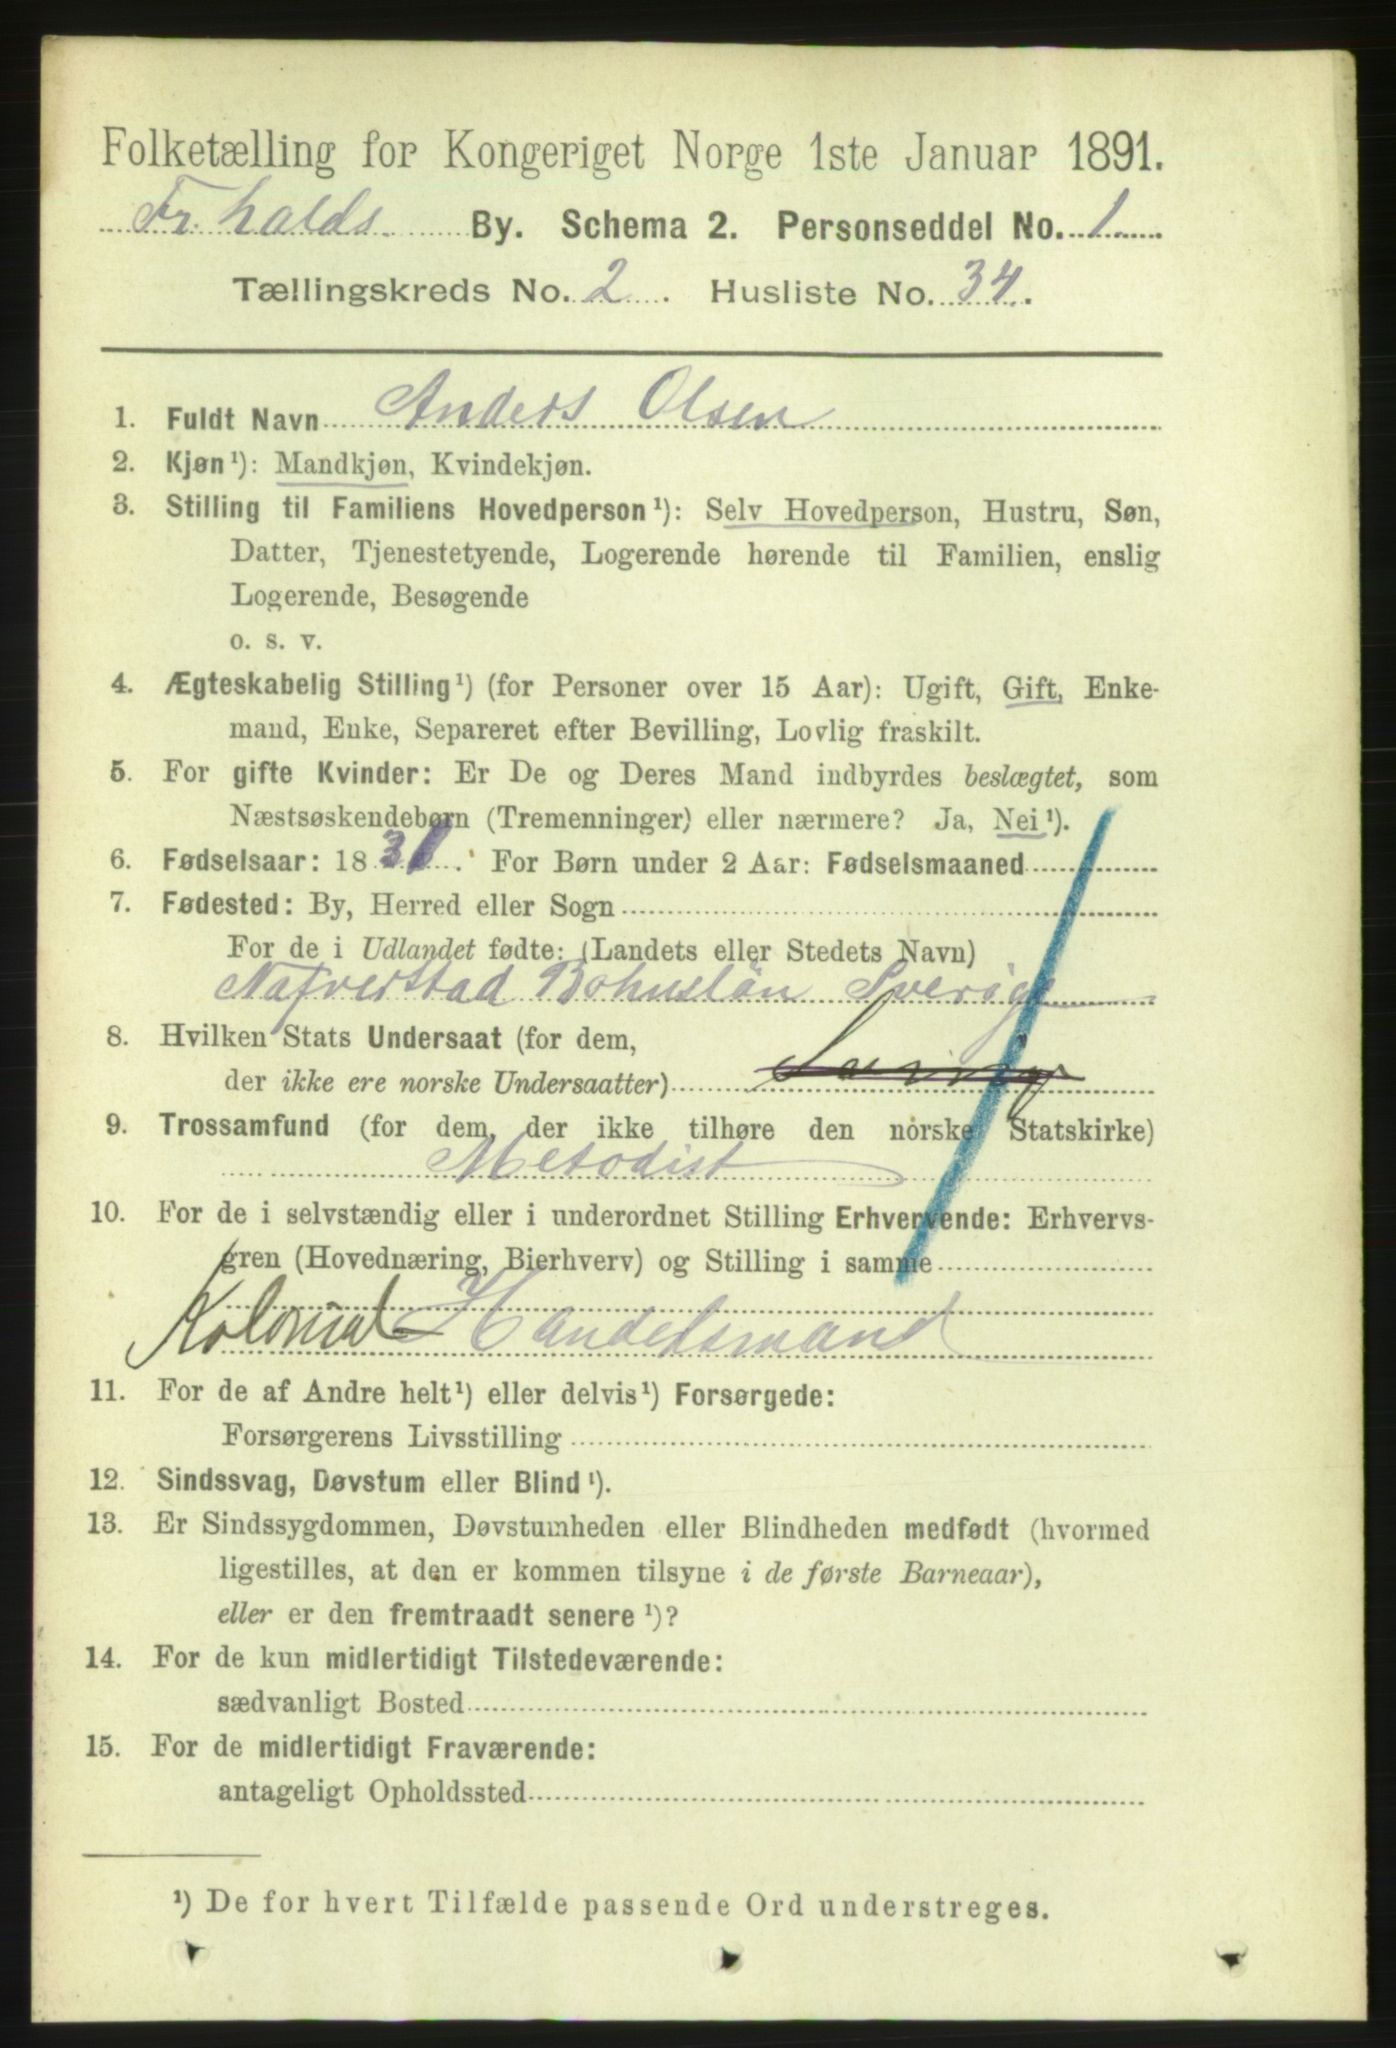 Folketælling for Kongeriget Norge 1ste Januar 1891.
Fr.halds By. Schema 2. Personseddel No. 1
Tællingskreds No. 2. Husliste No. 34.
1. Fuldt Navn Anders Olsen
2. Kjøn¹): Mandkjøn, Kvindekjøn.
3. Stilling til Familiens Hovedperson¹): Selv Hovedperson, Hustru, Søn,
Datter, Tjenestetyende, Logerende hørende til Familien, enslig
Logerende, Besøgende
o. s. v.
4. Ægteskabelig Stilling¹) (for Personer over 15 Aar): Ugift, Gift, Enke-
mand, Enke, Separeret efter Bevilling, Lovlig fraskilt.
5. For gifte Kvinder: Er De og Deres Mand indbyrdes beslægtet, som
Næstsøskendebørn (Tremenninger) eller nærmere? Ja, Nei¹).
6. Fødselsaar: 1831. For Børn under 2 Aar: Fødselsmaaned
7. Fødested: By, Herred eller Sogn
For de i Udlandet fødte: (Landets eller Stedets Navn)
Nafverstad Bohuslän Sverige
8. Hvilken Stats Undersaat (for dem,
der ikke ere norske Undersaatter) Sverige
9. Trossamfund (for dem, der ikke tilhøre den norske Statskirke)
Metodist
10. For de i selvstændig eller i underordnet Stilling Erhvervende: Erhvervs-
gren (Hovednæring, Bierhverv) og Stilling i samme
Kolonial Handelsmand
11. For de af Andre helt¹) eller delvis¹) Forsørgede:
Forsørgerens Livsstilling
12. Sindssvag, Døvstum eller Blind¹).
13. Er Sindssygdommen, Døvstumheden eller Blindheden medfødt (hvormed
ligestilles, at den er kommen tilsyne i de første Barneaar),
eller er den fremtraadt senere¹)?
14. For de kun midlertidigt Tilstedeværende:
sædvanligt Bosted
15. For de midlertidigt Fraværende:
antageligt Opholdssted
¹) De for hvert Tilfælde passende Ord understreges.